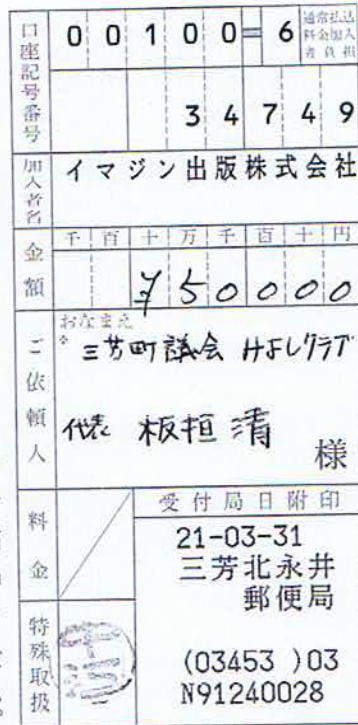 口座記号番号
00100=6
通常払込料金加入者負担
34749
加入者名
イマジン出版株式会社
金額
千百十万千百十円
¥50000
ご依頼人
おなまえ
* 三芳町議会 みよしクラブ
代表 板垣清
様
料金
受付局日附印
21-03-31
三芳北永井
郵便局
(03453 )03
N91240028
特殊取扱